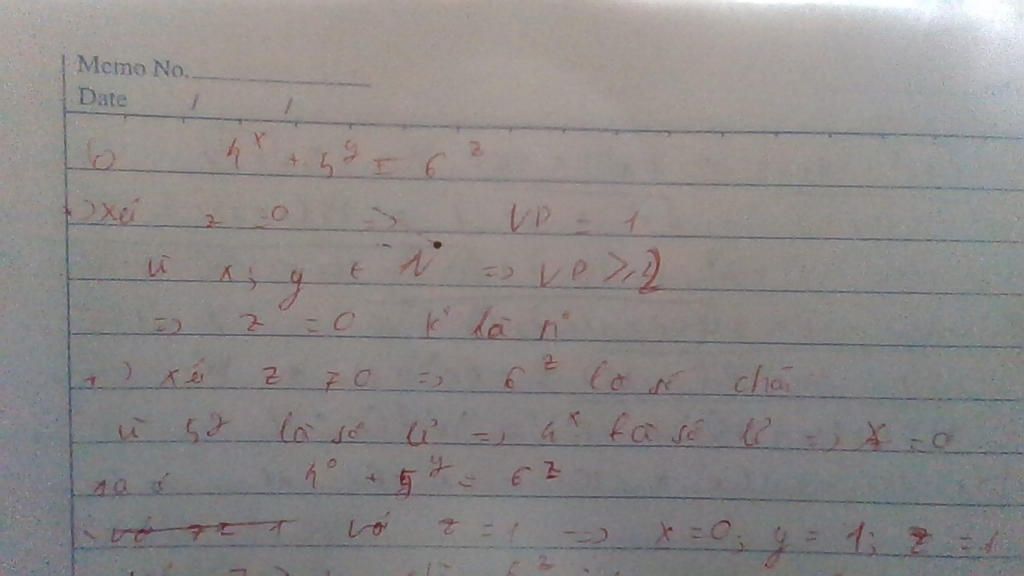 Memo No.
Date / /
4^x + 5^y = 6^z
+) xét z = 0 => VP = 1
vì x; y ∈ N => VP ≥ 2
=> z = 0 k là n°
+) xét z ≠ 0 => 6^z là số chẵn
vì 5^y là số lẻ => 4^x là số lẻ => x = 0
4^0 + 5^y = 6^z
với z = 1 => x = 0; y = 1; z = 1